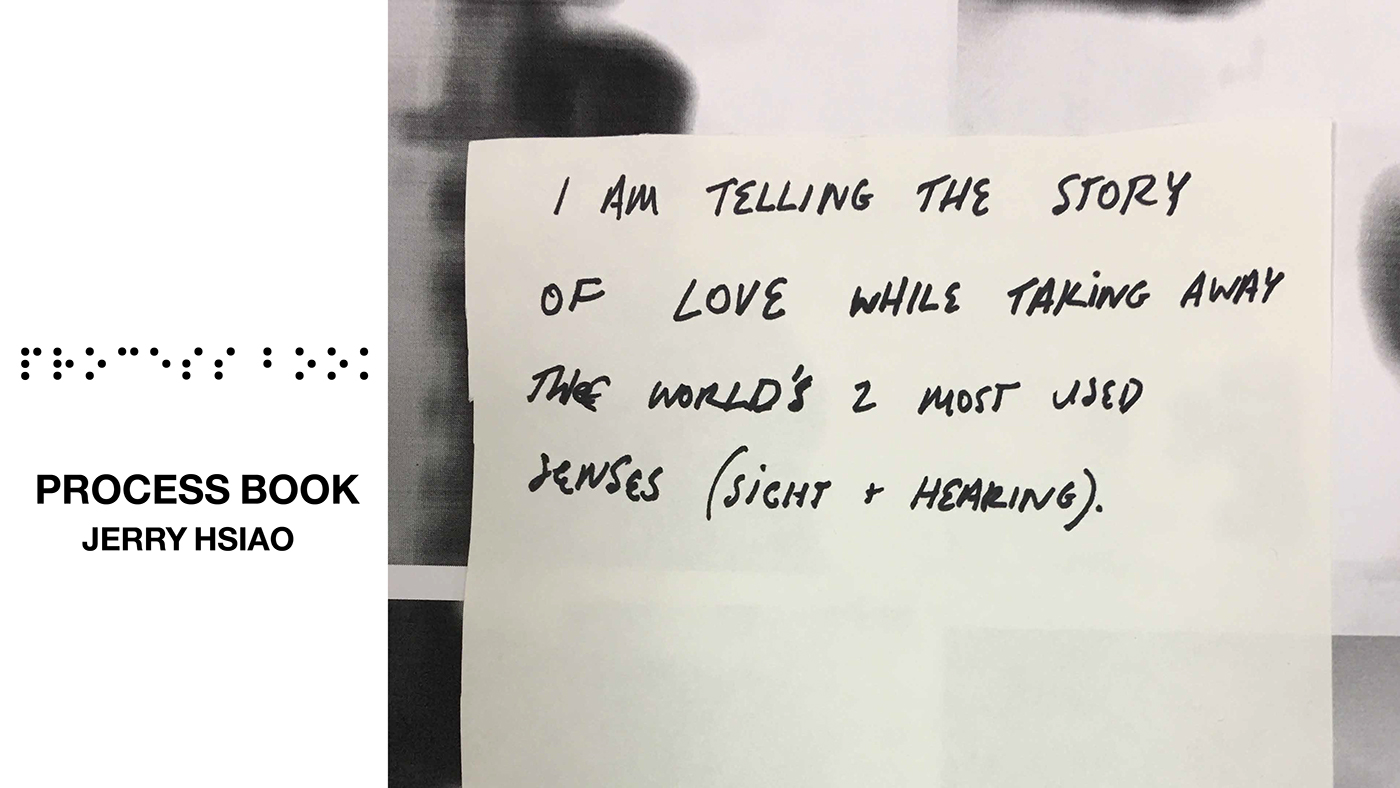 ⠏⠗⠕⠉⠑⠎⠎ ⠃⠕⠕⠅
PROCESS BOOK
JERRY HSIAO
I AM TELLING THE STORY
OF LOVE WHILE TAKING AWAY
THE WORLD'S 2 MOST USED
SENSES (SIGHT + HEARING).